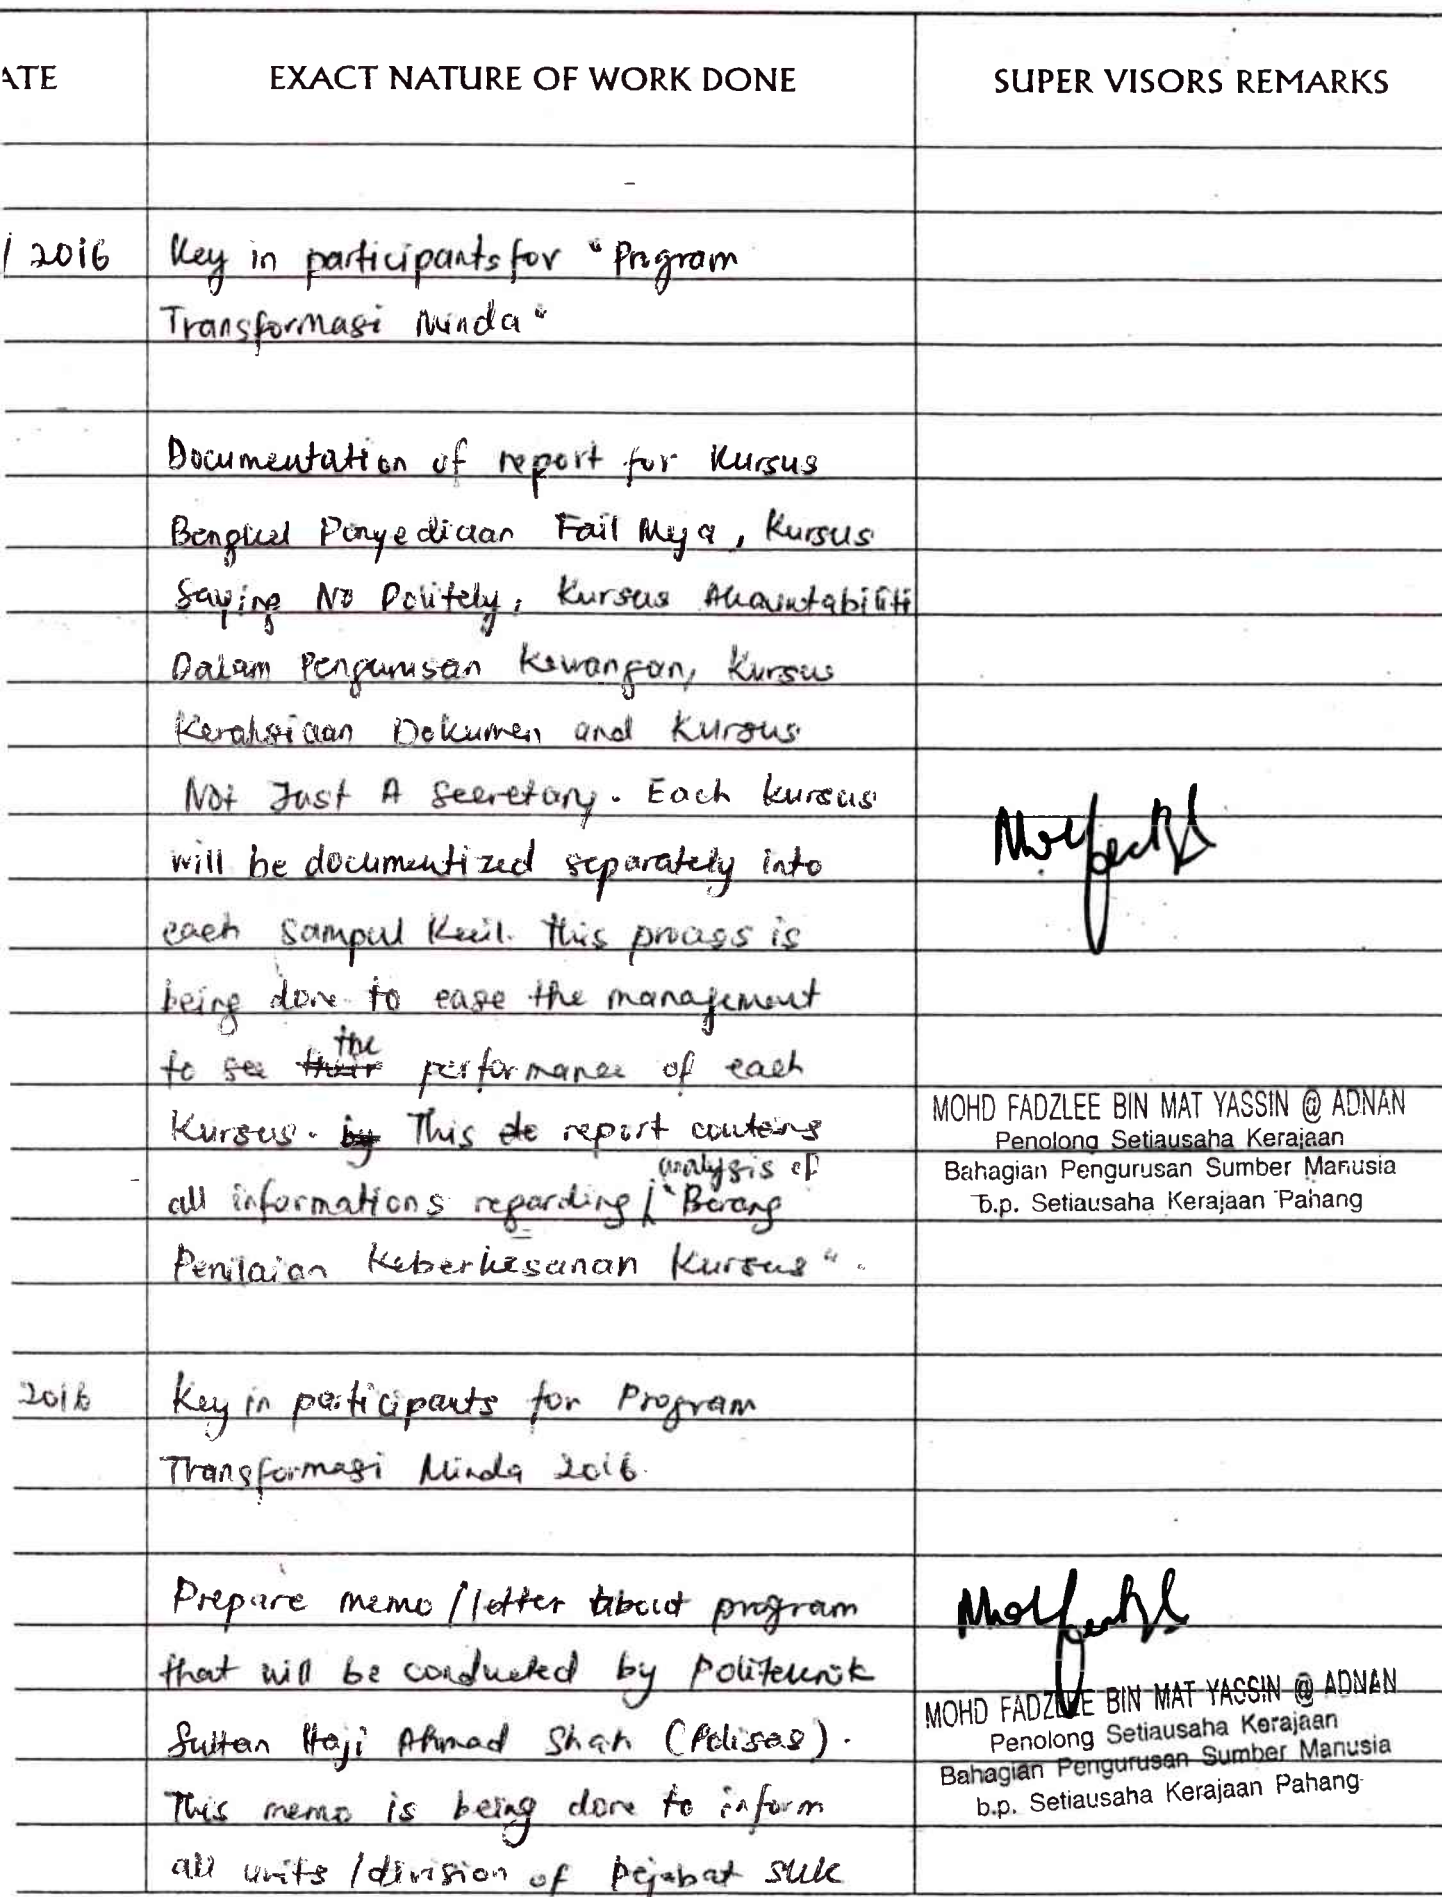 ATE EXACT NATURE OF WORK DONE SUPER VISORS REMARKS
/ 2016 Key in participants for "Program
Transformasi Minda"
Documentation of report for Kursus
Bengkel Penyediaan Fail Meja, Kursus
Saying No Politely, Kursus Akauntabiliti
Dalam Pengurusan Kewangan, Kursus
Kerahsiaan Dokumen and Kursus
Not Just A Secretary. Each kursus
will be documentized separately into
each Sampul Kecil. This process is
being done to ease the management
to see the performance of each
Kursus. This report contains
all informations regarding analysis of "Borang
Penilaian Keberkesanan Kursus".
MOHD FADZLEE BIN MAT YASSIN @ ADNAN
Penolong Setiausaha Kerajaan
Bahagian Pengurusan Sumber Manusia
b.p. Setiausaha Kerajaan Pahang
2016 Key in participants for Program
Transformasi Minda 2016.
Prepare memo / letter about program
that will be conducted by Politeknik
Sultan Haji Ahmad Shah (Polisas).
This memo is being done to inform
all units / division of Pejabat SUK
MOHD FADZLEE BIN MAT YASSIN @ ADNAN
Penolong Setiausaha Kerajaan
Bahagian Pengurusan Sumber Manusia
b.p. Setiausaha Kerajaan Pahang